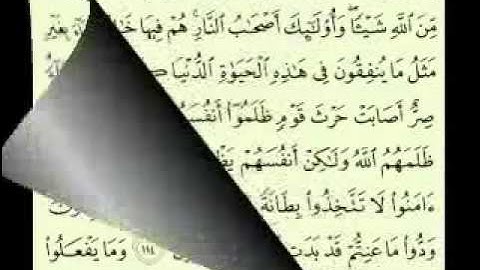 مِّنَ ٱللَّهِ شَيْـًٔا ۖ وَأُو۟لَـٰٓئِكَ أَصْحَـٰبُ ٱلنَّارِ ۚ هُمْ فِيهَا بِغَيْرِ
مَثَلُ مَا يُنفِقُونَ فِى هَـٰذِهِ ٱلْحَيَوٰةِ ٱلدُّنْيَا
صِرٌّ أَصَابَتْ حَرْثَ قَوْمٍ ظَلَمُوٓا۟
ظَلَمَهُمُ ٱللَّهُ وَلَـٰكِنْ أَنفُسَهُمْ
ءَامَنُوا۟ لَا تَتَّخِذُوا۟ بِطَانَةً
وَدُّوا۟ مَا عَنِتُّمْ قَدْ بَدَتِ ١١٤ وَمَا يَفْعَلُوا۟